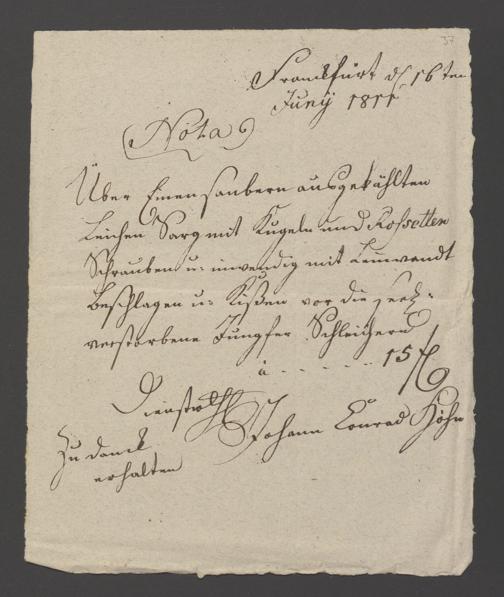 37
Franckfurt d 16ten
Junÿ 1811
(Nota)
Über Einen saubern ausgekählten
Leichen Sarg mit Kugeln und Rossetten
Schrauben u: inwendig mit Leinwandt
beschlagen u: Kißen vor die seel:
verstorbene Jungfer Schleichern
a - - - - - - 15 f
Johann Conrad Höhn
Zu danck
erhalten